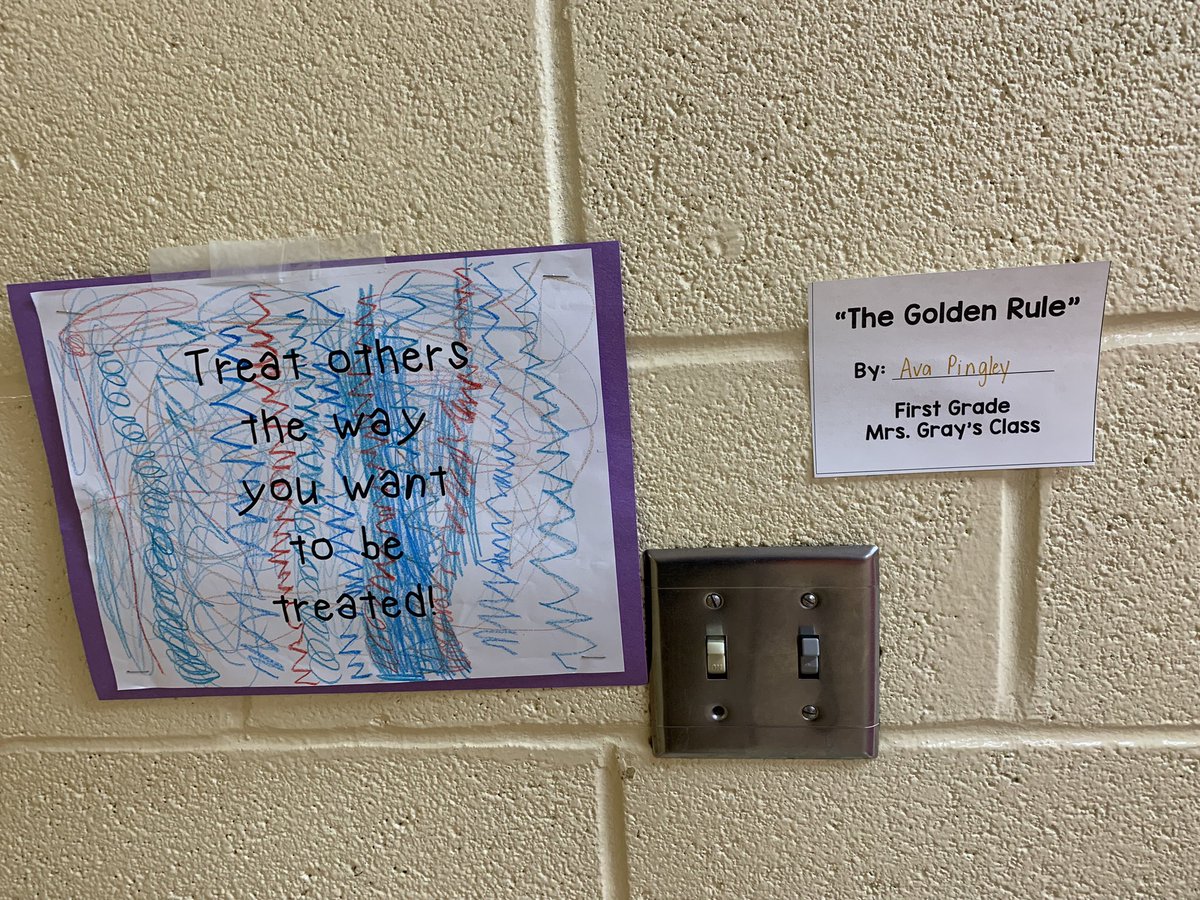 Treat others
the way
you want
to be
treated!
“The Golden Rule”
By: Ava Pingley
First Grade
Mrs. Gray’s Class